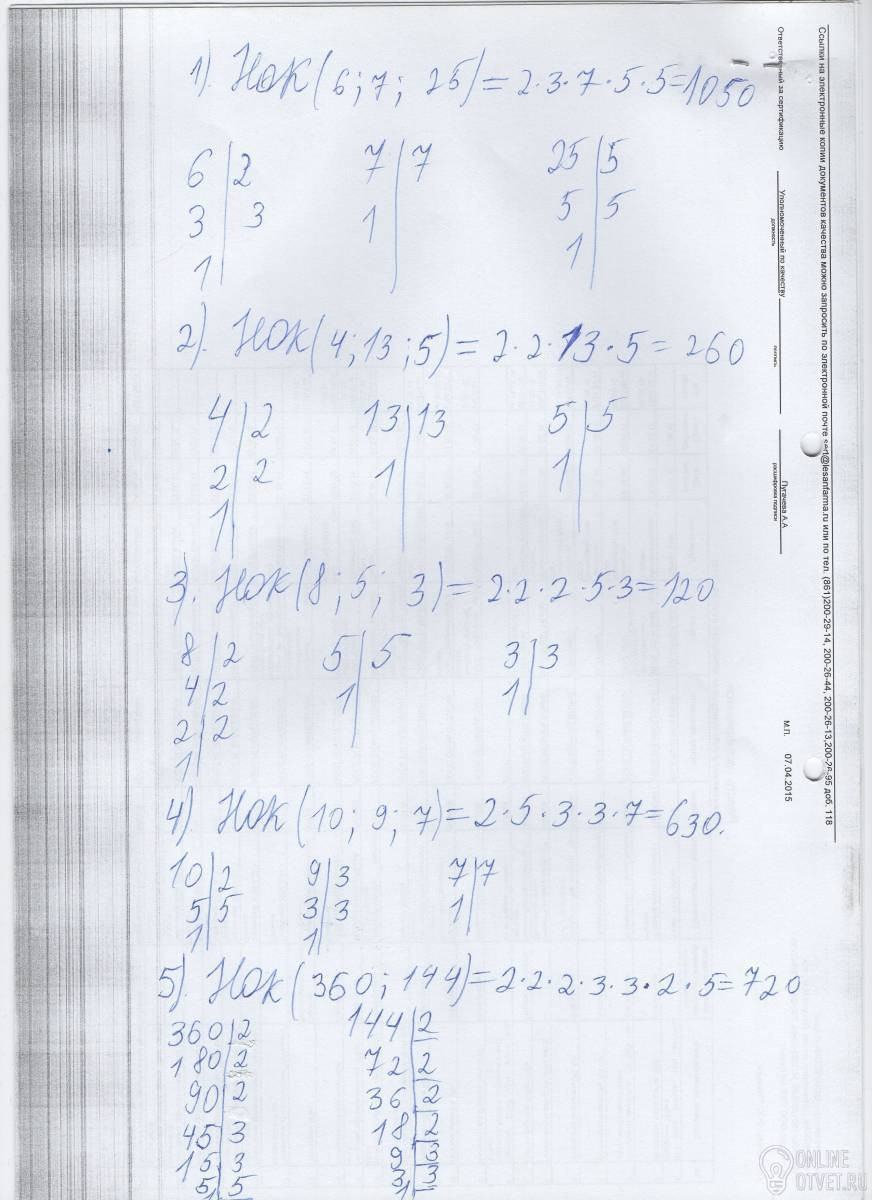 1). Нок(6; 7; 25) = 2·3·7·5·5=1050
6|2 7|7 25|5
3|3 1| 5|5
1| 1|
2). НОК(4; 13; 5) = 2·2·13·5 = 260
4|2 13|13 5|5
2|2 1| 1|
1|
3). НОК(8; 5; 3) = 2·2·2·5·3=120
8|2 5|5 3|3
4|2 1| 1|
2|2
1|
4) НОК (10; 9; 7) = 2·5·3·3·7=630.
10|2 9|3 7|7
5|5 3|3 1|
1| 1|
5). НОК (360; 144) = 2·2·2·3·3·2·5=720
360|2 144|2
180|2 72|2
90|2 36|2
45|3 18|2
15|3 9|3
5|5 3|3
1| 1|
Ссылки на электронные копии документов качества можно запросить по электронной почте @lesanfarma.ru или по тел. (861)200-29-14, 200-26-44, 200-26-13, доб. 118
Ответственный за сертификацию
Уполномоченный по качеству
должность
Пугачева А.А
расшифровка подписи
М.П. 07.04.2015
ONLINE
OTVET.RU